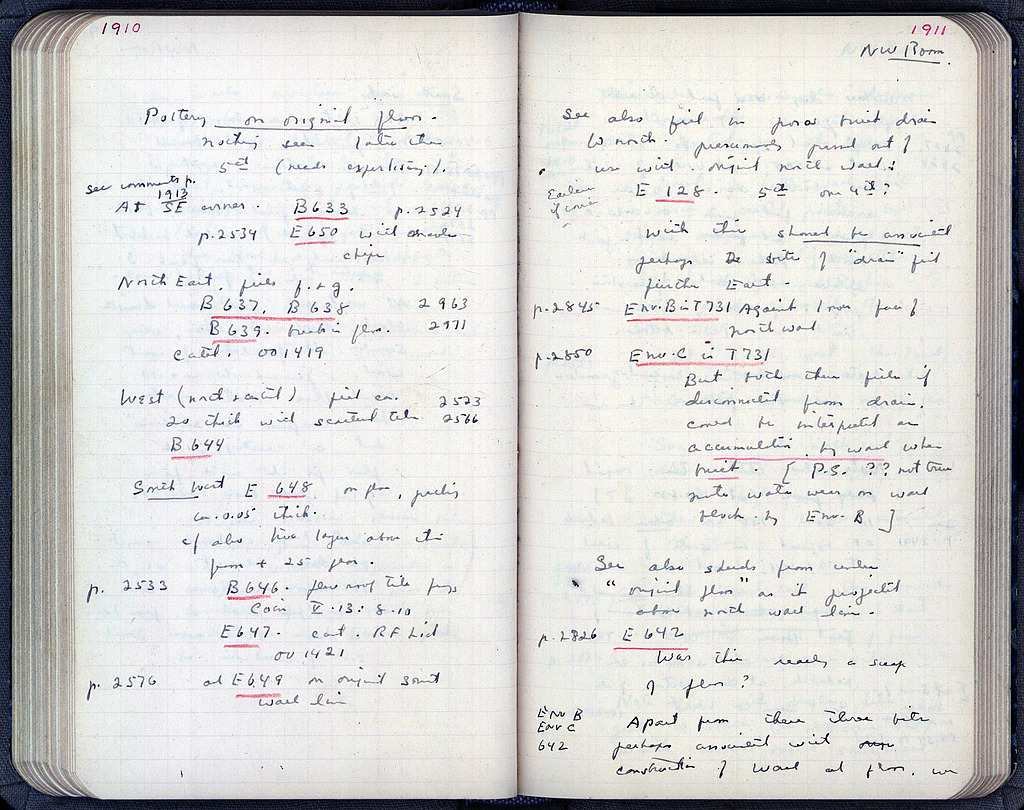 1910
Pottery on original floor.
nothing seen later than
5th (needs expertising).
See comments p.
1913
At SE corner. B633 p.2524
p.2534 E650 with marble
chips
North East, piles f. & g.
B637, B638 2963
B639. break in floor. 2971
Catal. 001419
West (north central) fill ca. 2523
20 thick with scattered tile 2566
B644
South West E 648 on floor, packing
ca. 0.05 thick.
cf also two layers above this
from + 25 floor.
p. 2533 B646. few roof tile frags
Coin V.13:8.10
E647. cat. RF Lid
001421
p. 2576 and E649 on original south
wall line
1911
NW Room.
See also fill in poros built drain
to north. presumably passed out of
use with original north wall:
Earlier
E 128 5th or 4th?
With this should be associated
perhaps the bits of "drain" fill
further East.
p.2845 Env.B in T731 Against inner face of
north wall
p.2850 Env.C in T731
But both these fills if
disconnected from drain,
could be interpreted as
accumulation by wall when
built. [P.S. ?? not true
note water wear on wall
block by Env B.]
See also sherds from under
"original floor" as it projected
above north wall line.
p.2826 E 642
Was this really a scrap
of floor?
Env B
Env C
642
Apart from these three bits
perhaps associated with
construction of wall and floor, we